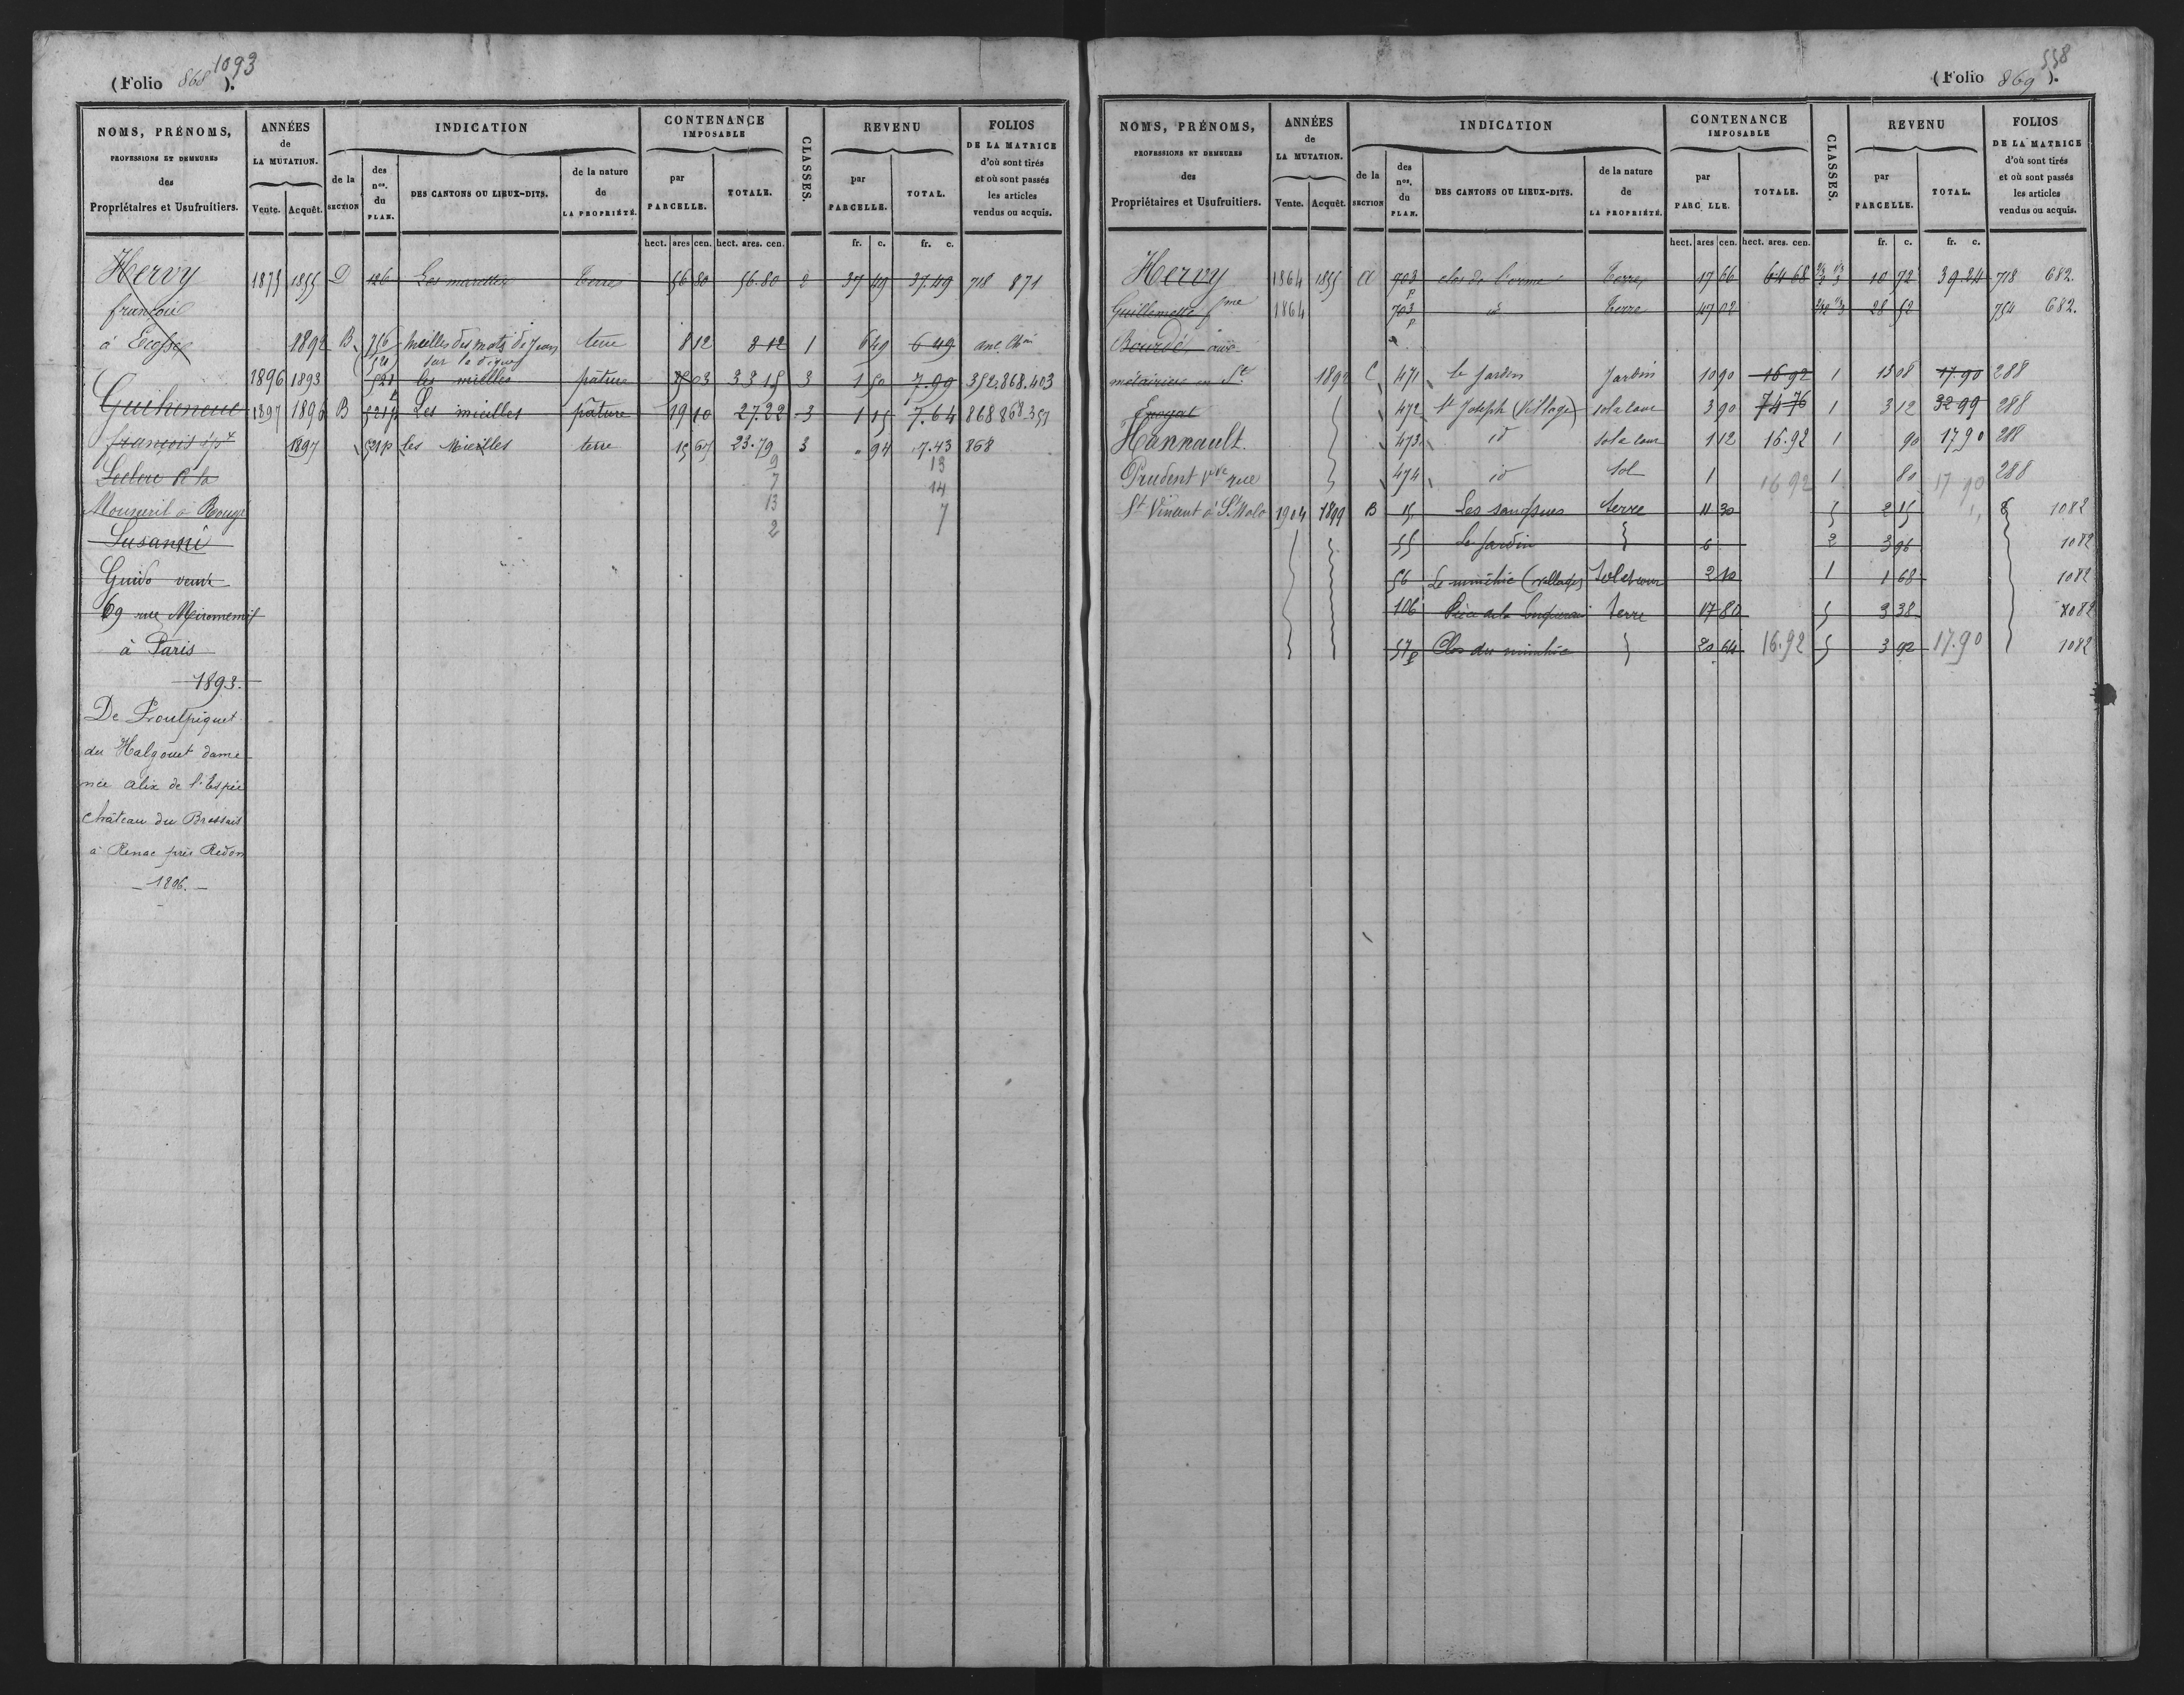 (Folio 868).
1093
NOMS, PRÉNOMS,
PROFESSIONS ET DEMEURES
des
Propriétaires et Usufruitiers.
ANNÉES
de
LA MUTATION.
Vente. Acquêt.
INDICATION
de la SECTION
des nos. du PLAN.
DES CANTONS OU LIEUX-DITS.
de la nature de LA PROPRIÉTÉ.
CONTENANCE
IMPOSABLE
par PARCELLE.
TOTALE.
CLASSES.
REVENU
par PARCELLE.
TOTAL.
FOLIOS
DE LA MATRICE
d'où sont tirés
et où sont passés
les articles
vendus ou acquis.
hect. ares cen. hect. ares. cen. fr. c. fr. c.
Hervy 1875 1855 D 126 Les murettes terre 56 80 56.80 2 37 49 37.49 718 871
françois
à Ecosse 1892 B 756 terre 8 12 8 12 1 6 49 6 49
sur la digue
1896 1893 521 les mielles pâture 25 03 33 15 3 1 50 7.99 352.868.403
Guiheneuc 1897 1896 B 521p Les mielles pâture 19 10 27.22 3 1 15 7.64 868 868.357
françois 1897 521p les Mielles terre 15 67 23.79 3 " 94 7.43 868
9 13
Leclerc de la 7 14
à Rougé 13 7
Susanni 2
Guido veuve
69 rue Miromenil
à Paris
1893.
De Poulpiquet
du Halgouet dame
née Alix de l'Espée
château du Brossais
à Renac près Redon
1896.
(Folio 869).
558
NOMS, PRÉNOMS,
PROFESSIONS ET DEMEURES
des
Propriétaires et Usufruitiers.
ANNÉES
de
LA MUTATION.
Vente. Acquêt.
INDICATION
de la SECTION
des nos. du PLAN.
DES CANTONS OU LIEUX-DITS.
de la nature de LA PROPRIÉTÉ.
CONTENANCE
IMPOSABLE
par PARC LLE.
TOTALE.
CLASSES.
REVENU
par PARCELLE.
TOTAL.
FOLIOS
DE LA MATRICE
d'où sont tirés
et où sont passés
les articles
vendus ou acquis.
hect. ares cen. hect. ares. cen. fr. c. fr. c.
Hervy 1864 1855 A 703 p clos de l'orme terre 17 66 64 68 10 72 39 24 718 682.
Guillemette fme 1864 703 p id terre 47 02 28 52 754 682.
Bourdé
métairie en St. 1892 C 471 le Jardin Jardin 10 90 16 92 1 13 08 17.90 288
Enogat 472 St Joseph (Village) sol & cour 3 90 74 76 1 3 12 32 99 288
Hannault 473 id sol & cour 1 12 16.92 1 90 17 90 288
Prudent vve rue 474 id sol 1 16 92 1 80 17 90 288
St Vincent à St Malo 1904 1899 B 15 Les sangsues terre 11 30 5 2 15 1082
55 Le Jardin 6 2 3 96 1082
56 Le minihic (village) sol et cour 2 10 1 1 68 1082
106 terre 17 80 5 3 38 1082
57p Clos du minihic 20 64 16.92 5 3 92 17.90 1082